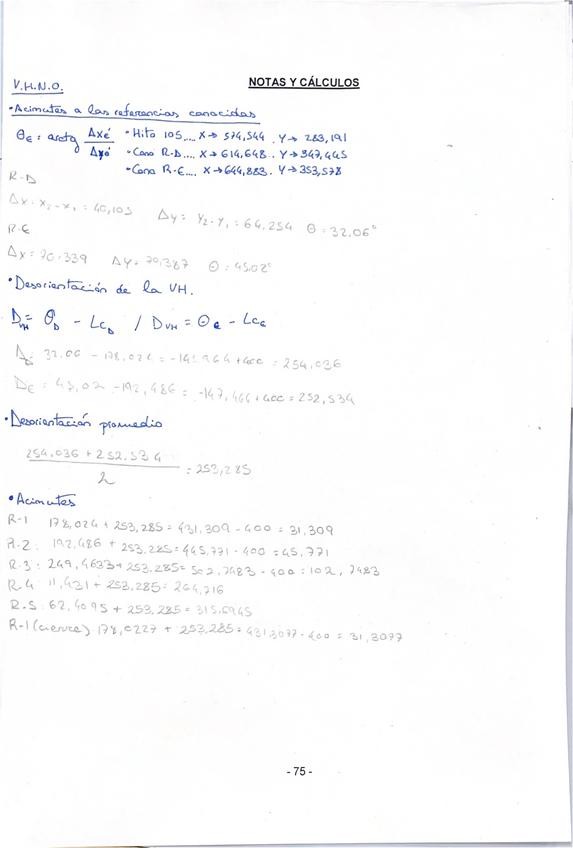 NOTAS Y CÁLCULOS
V.H.N.O.
•Acimutes a las referencias conocidas
• Hito 105.... X→ 574,544 . Y→ 283,191
θE = arctg ΔXE/ΔYE • Cano R-D.... X→614,648 . Y→347,445
• Cano R-E.... X→644,883. Y→353,578
R-D
Δx = x2 - x1 = 40,103 Δy = Y2 - Y1 = 64,254 θ = 32,06°
R-E
Δx = 70,339 Δy = 70,387 θ = 45,02°
•Desorientación de la VH.
DVH = θD - LCD / DVH = θE - LCE
DD = 32,06 - 178,024 = -145,964 + 400 = 254,036
DE = 45,02 - 192,486 = -147,466 + 400 = 252,534
•Desorientación promedio
254,036 + 252,534
= 253,285
2
•Acimutes
R-1 178,024 + 253,285 = 431,309 - 400 = 31,309
R-2: 192,486 + 253,285 = 445,771 - 400 = 45,771
R-3: 249,4633 + 253,285 = 502,7483 - 400 = 102,7483
R-4 11,431 + 253,285 = 264,716
R-5: 62,4095 + 253,285 = 315,6945
R-1 (cierre) 178,0227 + 253,285 = 431,3077 - 400 = 31,3077
- 75 -